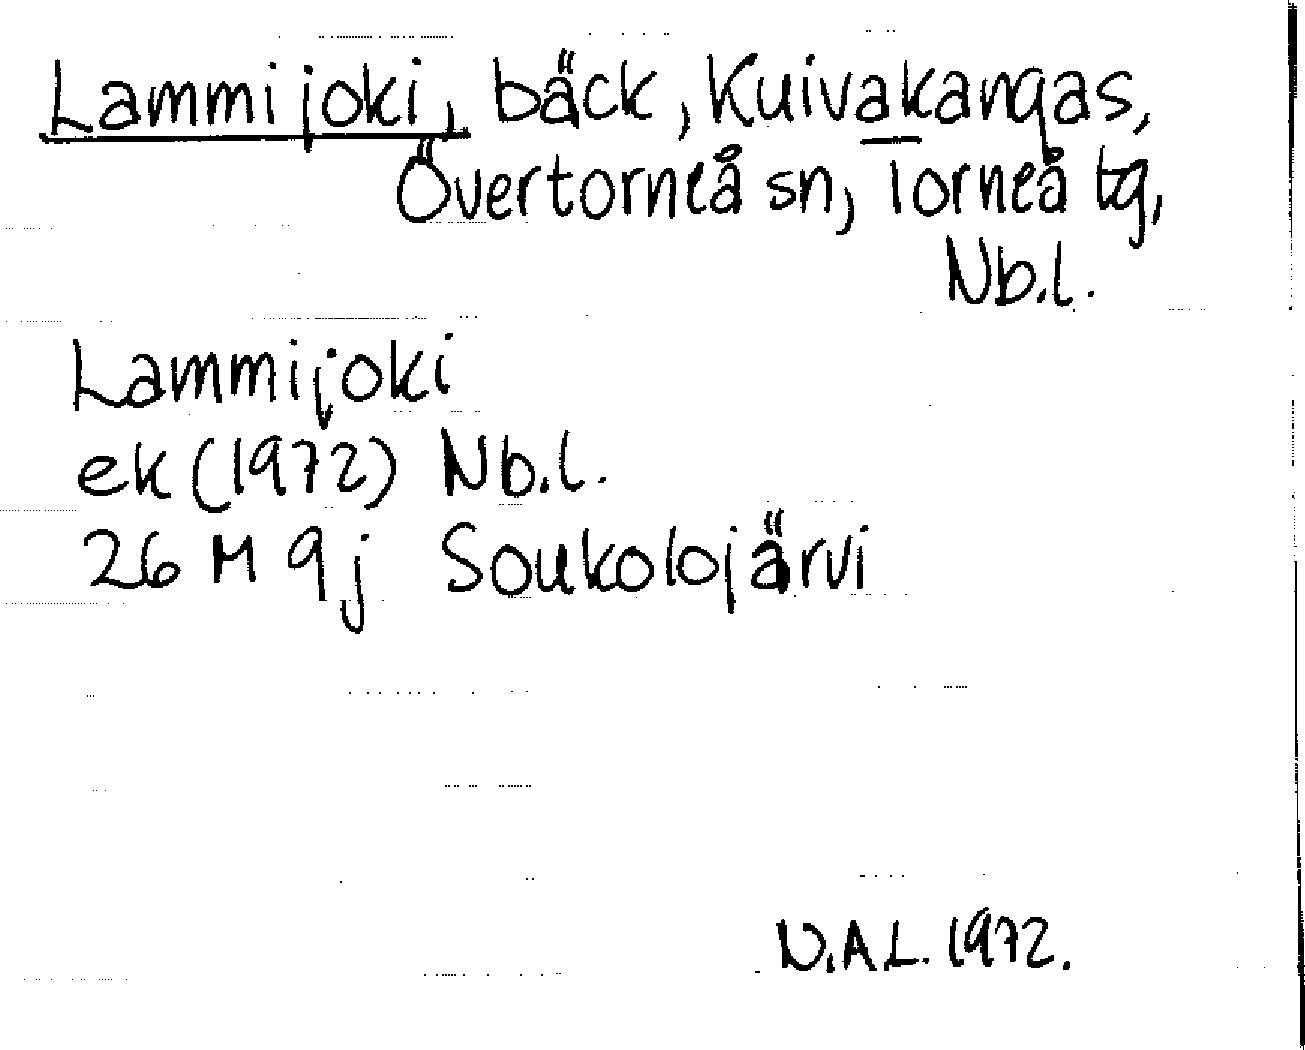 Lammijoki, bäck, Kuivakangas,
Övertorneå sn, Torneå tg,
Nb.l.
Lammijoki
ek (1972) Nb.l.
26 M 9j Soukolojärvi
N.A.L. 1972.